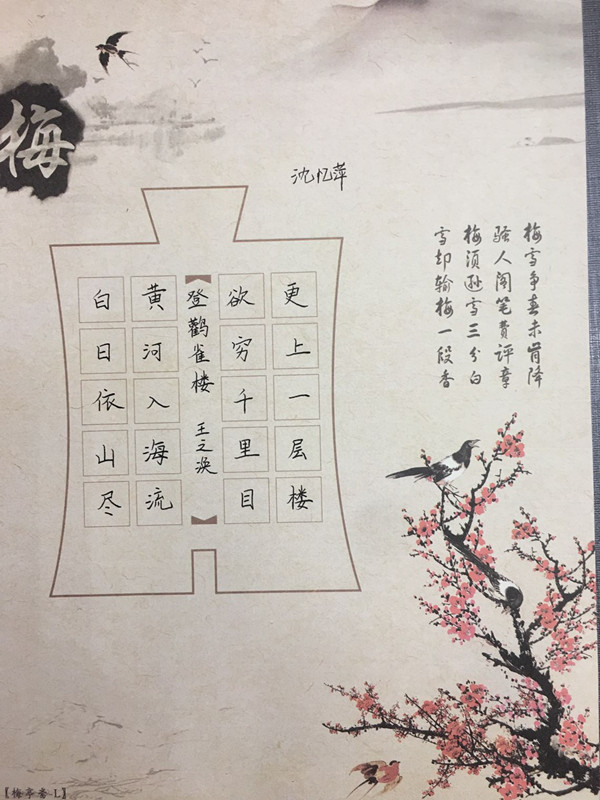 梅
沈忆萍
白日依山尽
黄河入海流
登鹳雀楼 王之涣
欲穷千里目
更上一层楼
梅雪争春未肯降
骚人阁笔费评章
梅须逊雪三分白
雪却输梅一段香